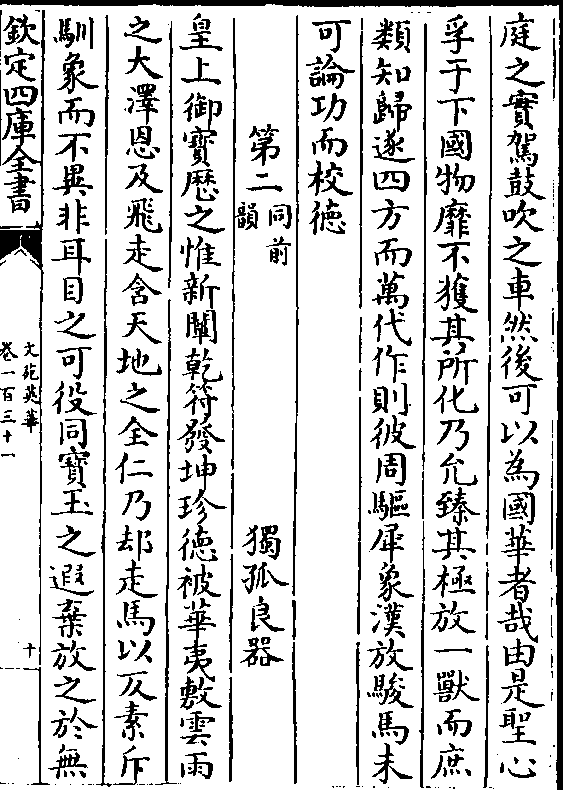 庭之實駕鼓吹之車然後可以為國華者哉由是聖心
孚于下國物靡不獲其所化乃允臻其極放一獸而庶
類知歸遂四方而萬代作則彼周驅犀象漢放駿馬未
可論功而校徳
第二同前韻 獨孤良器
皇上御寳厯之惟新闡乾符發坤珍徳被華夷敷雲雨
之大澤恩及飛走含天地之全仁乃却走馬以反素斥
馴象而不異非耳目之可役同寳玉之遐棄放之於無
欽定四庫全書
文苑英華
卷一百三十一
十